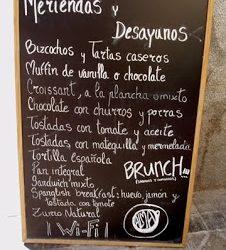 Meriendas y
Desayunos
Bizcochos y Tartas caseros
Muffin de vainilla o chocolate
Croissant, a la plancha o mixto
Chocolate con churros y porras
Tostadas con tomate y aceite
Tostadas con matequilla y mermelada
Tortilla Española
Pan integral
BRUNCH...
Sandwich mixto
Spanglish breakfast: huevo, jamón y
tostada con tomate
Zumo Natural
¡Wi-Fi!